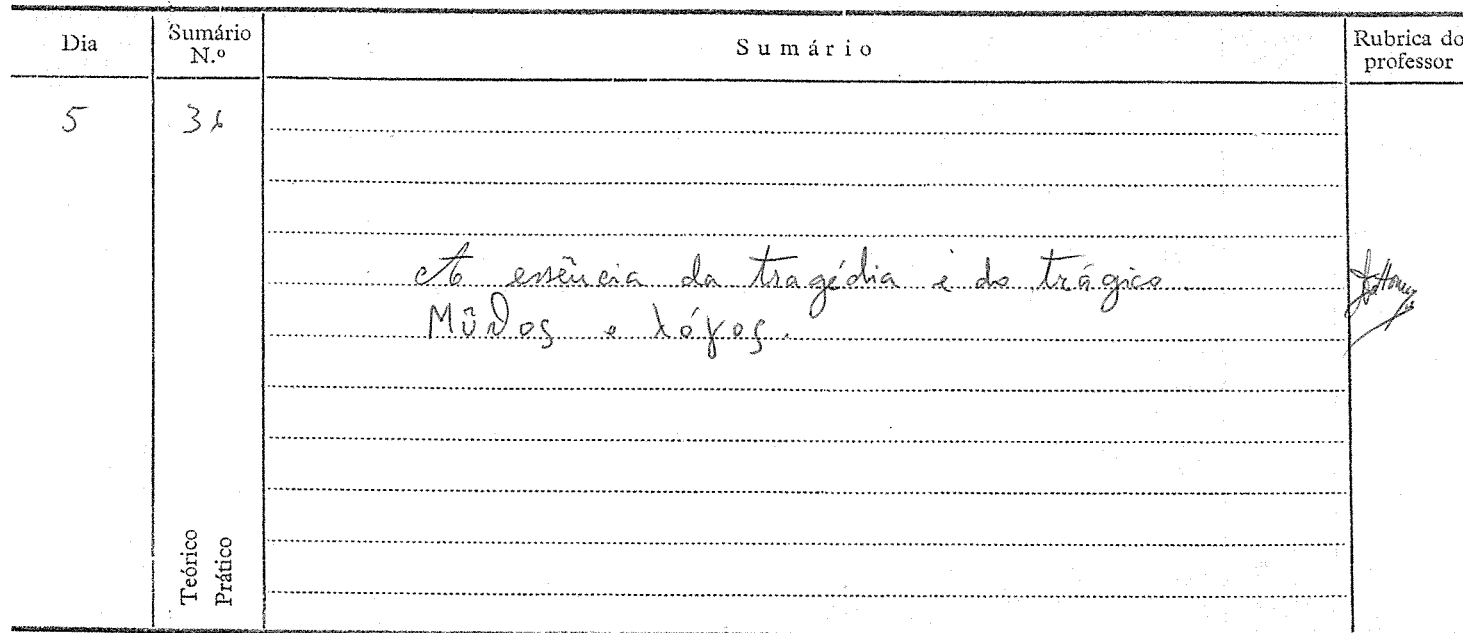 Dia
Sumário N.º
Sumário
Rubrica do professor
5
A essência da tragédia e do trágico.
Μῦθος e λόγος.
Teórico
Prático